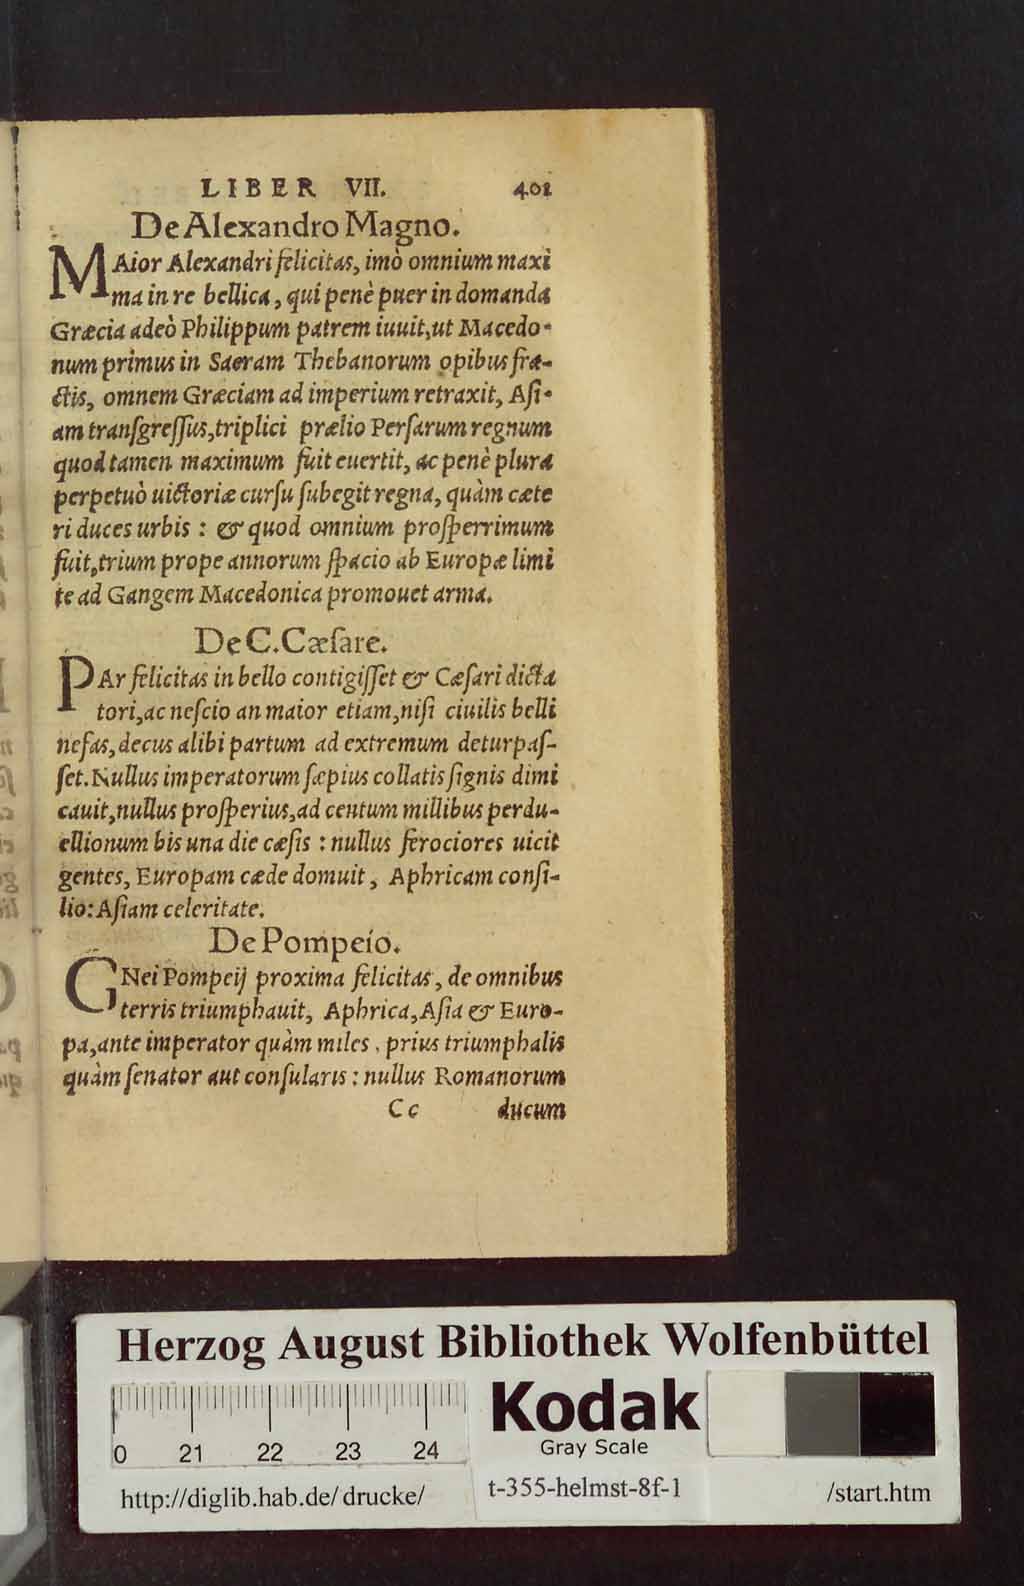 LIBER VII. 401
De Alexandro Magno.
MAior Alexandri felicitas, imò omnium maxi
ma in re bellica, qui penè puer in domanda
Græcia adeò Philippum patrem iuuit, ut Macedo-
num primus in Sacram Thebanorum opibus fra-
ctis, omnem Græciam ad imperium retraxit, Asi-
am transgressus, triplici prælio Persarum regnum
quod tamen maximum fuit euertit, ac penè plura
perpetuò uictoriæ cursu subegit regna, quàm cæte
ri duces urbis : & quod omnium prosperrimum
fuit, trium prope annorum spacio ab Europæ limi
te ad Gangem Macedonica promouet arma.
De C. Cæsare.
PAr felicitas in bello contigisset & Cæsari dicta
tori, ac nescio an maior etiam, nisi ciuilis belli
nefas, decus alibi partum ad extremum deturpas-
set. Nullus imperatorum sæpius collatis signis dimi
cauit, nullus prosperius, ad centum millibus perdu-
ellionum bis una die cæsis : nullus ferociores uicit
gentes, Europam cæde domuit, Aphricam consi-
lio: Asiam celeritate.
De Pompeio.
GNei Pompeij proxima felicitas, de omnibus
terris triumphauit, Aphrica, Asia & Euro-
pa, ante imperator quàm miles, prius triumphalis
quàm senator aut consularis : nullus Romanorum
Cc ducum
Herzog August Bibliothek Wolfenbüttel
Kodak
Gray Scale
0 21 22 23 24
http://diglib.hab.de/drucke/ t-355-helmst-8f-1 /start.htm